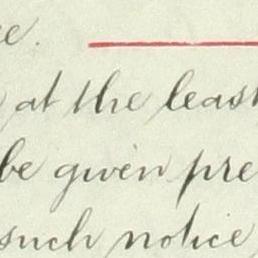 at the least
be given pre
such notice